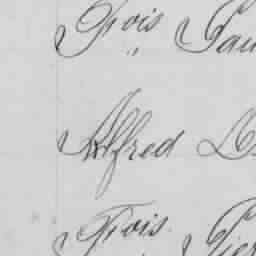 Fois Pau
"
Alfred D
Fois. Pier